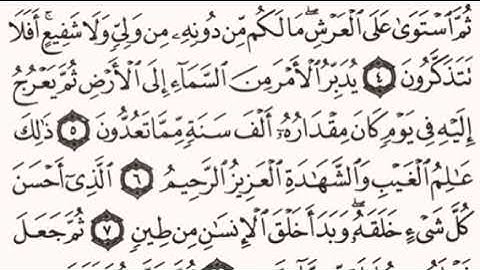 ثُمَّ ٱسْتَوَىٰ عَلَى ٱلْعَرْشِۖ مَا لَكُم مِّن دُونِهِۦ مِن وَلِىٍّ وَلَا شَفِيعٍۚ أَفَلَا
تَتَذَكَّرُونَ ٤ يُدَبِّرُ ٱلْأَمْرَ مِنَ ٱلسَّمَآءِ إِلَى ٱلْأَرْضِ ثُمَّ يَعْرُجُ
إِلَيْهِ فِى يَوْمٍ كَانَ مِقْدَارُهُۥٓ أَلْفَ سَنَةٍ مِّمَّا تَعُدُّونَ ٥ ذَٰلِكَ
عَٰلِمُ ٱلْغَيْبِ وَٱلشَّهَٰدَةِ ٱلْعَزِيزُ ٱلرَّحِيمُ ٦ ٱلَّذِىٓ أَحْسَنَ
كُلَّ شَىْءٍ خَلَقَهُۥۖ وَبَدَأَ خَلْقَ ٱلْإِنسَٰنِ مِن طِينٍ ٧ ثُمَّ جَعَلَ